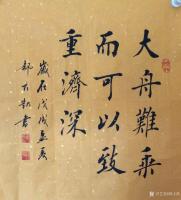 大舟難乘
而可以致
重濟深
歲在戊戌孟夏